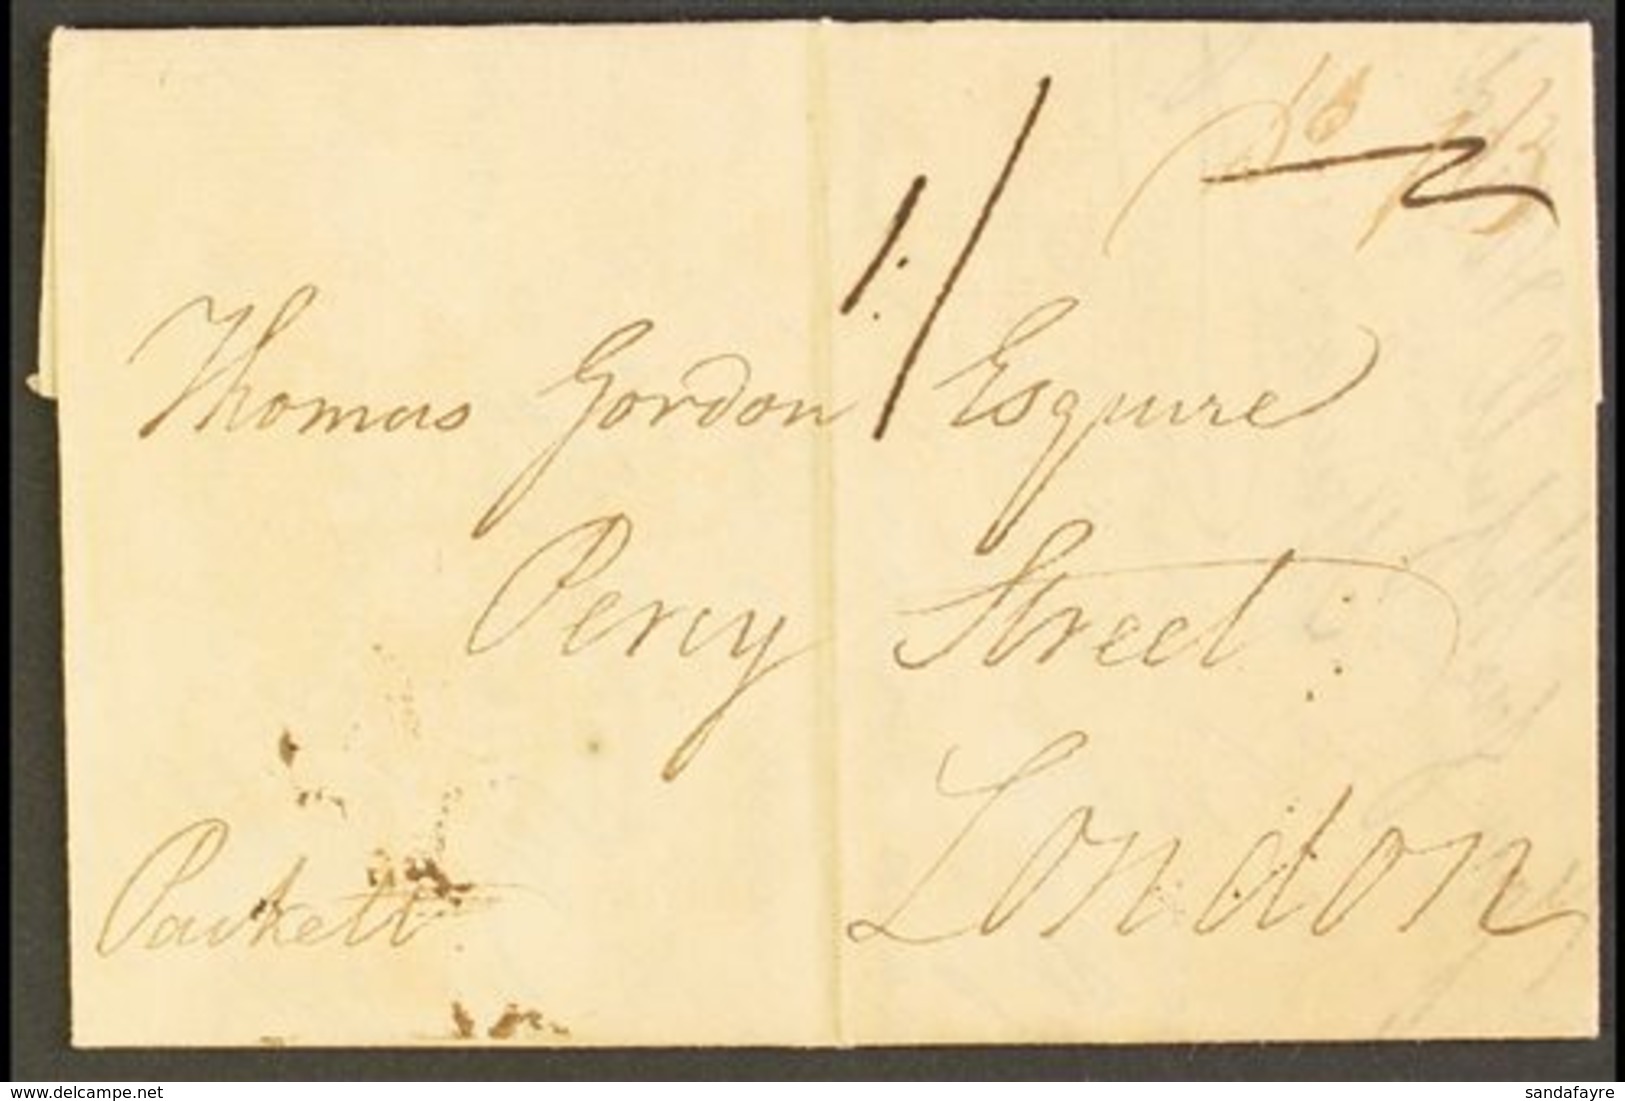 1:/
Thomas Gordon Esquire
Percy Street:
London
Packett
© delcampe.net
sandafayre